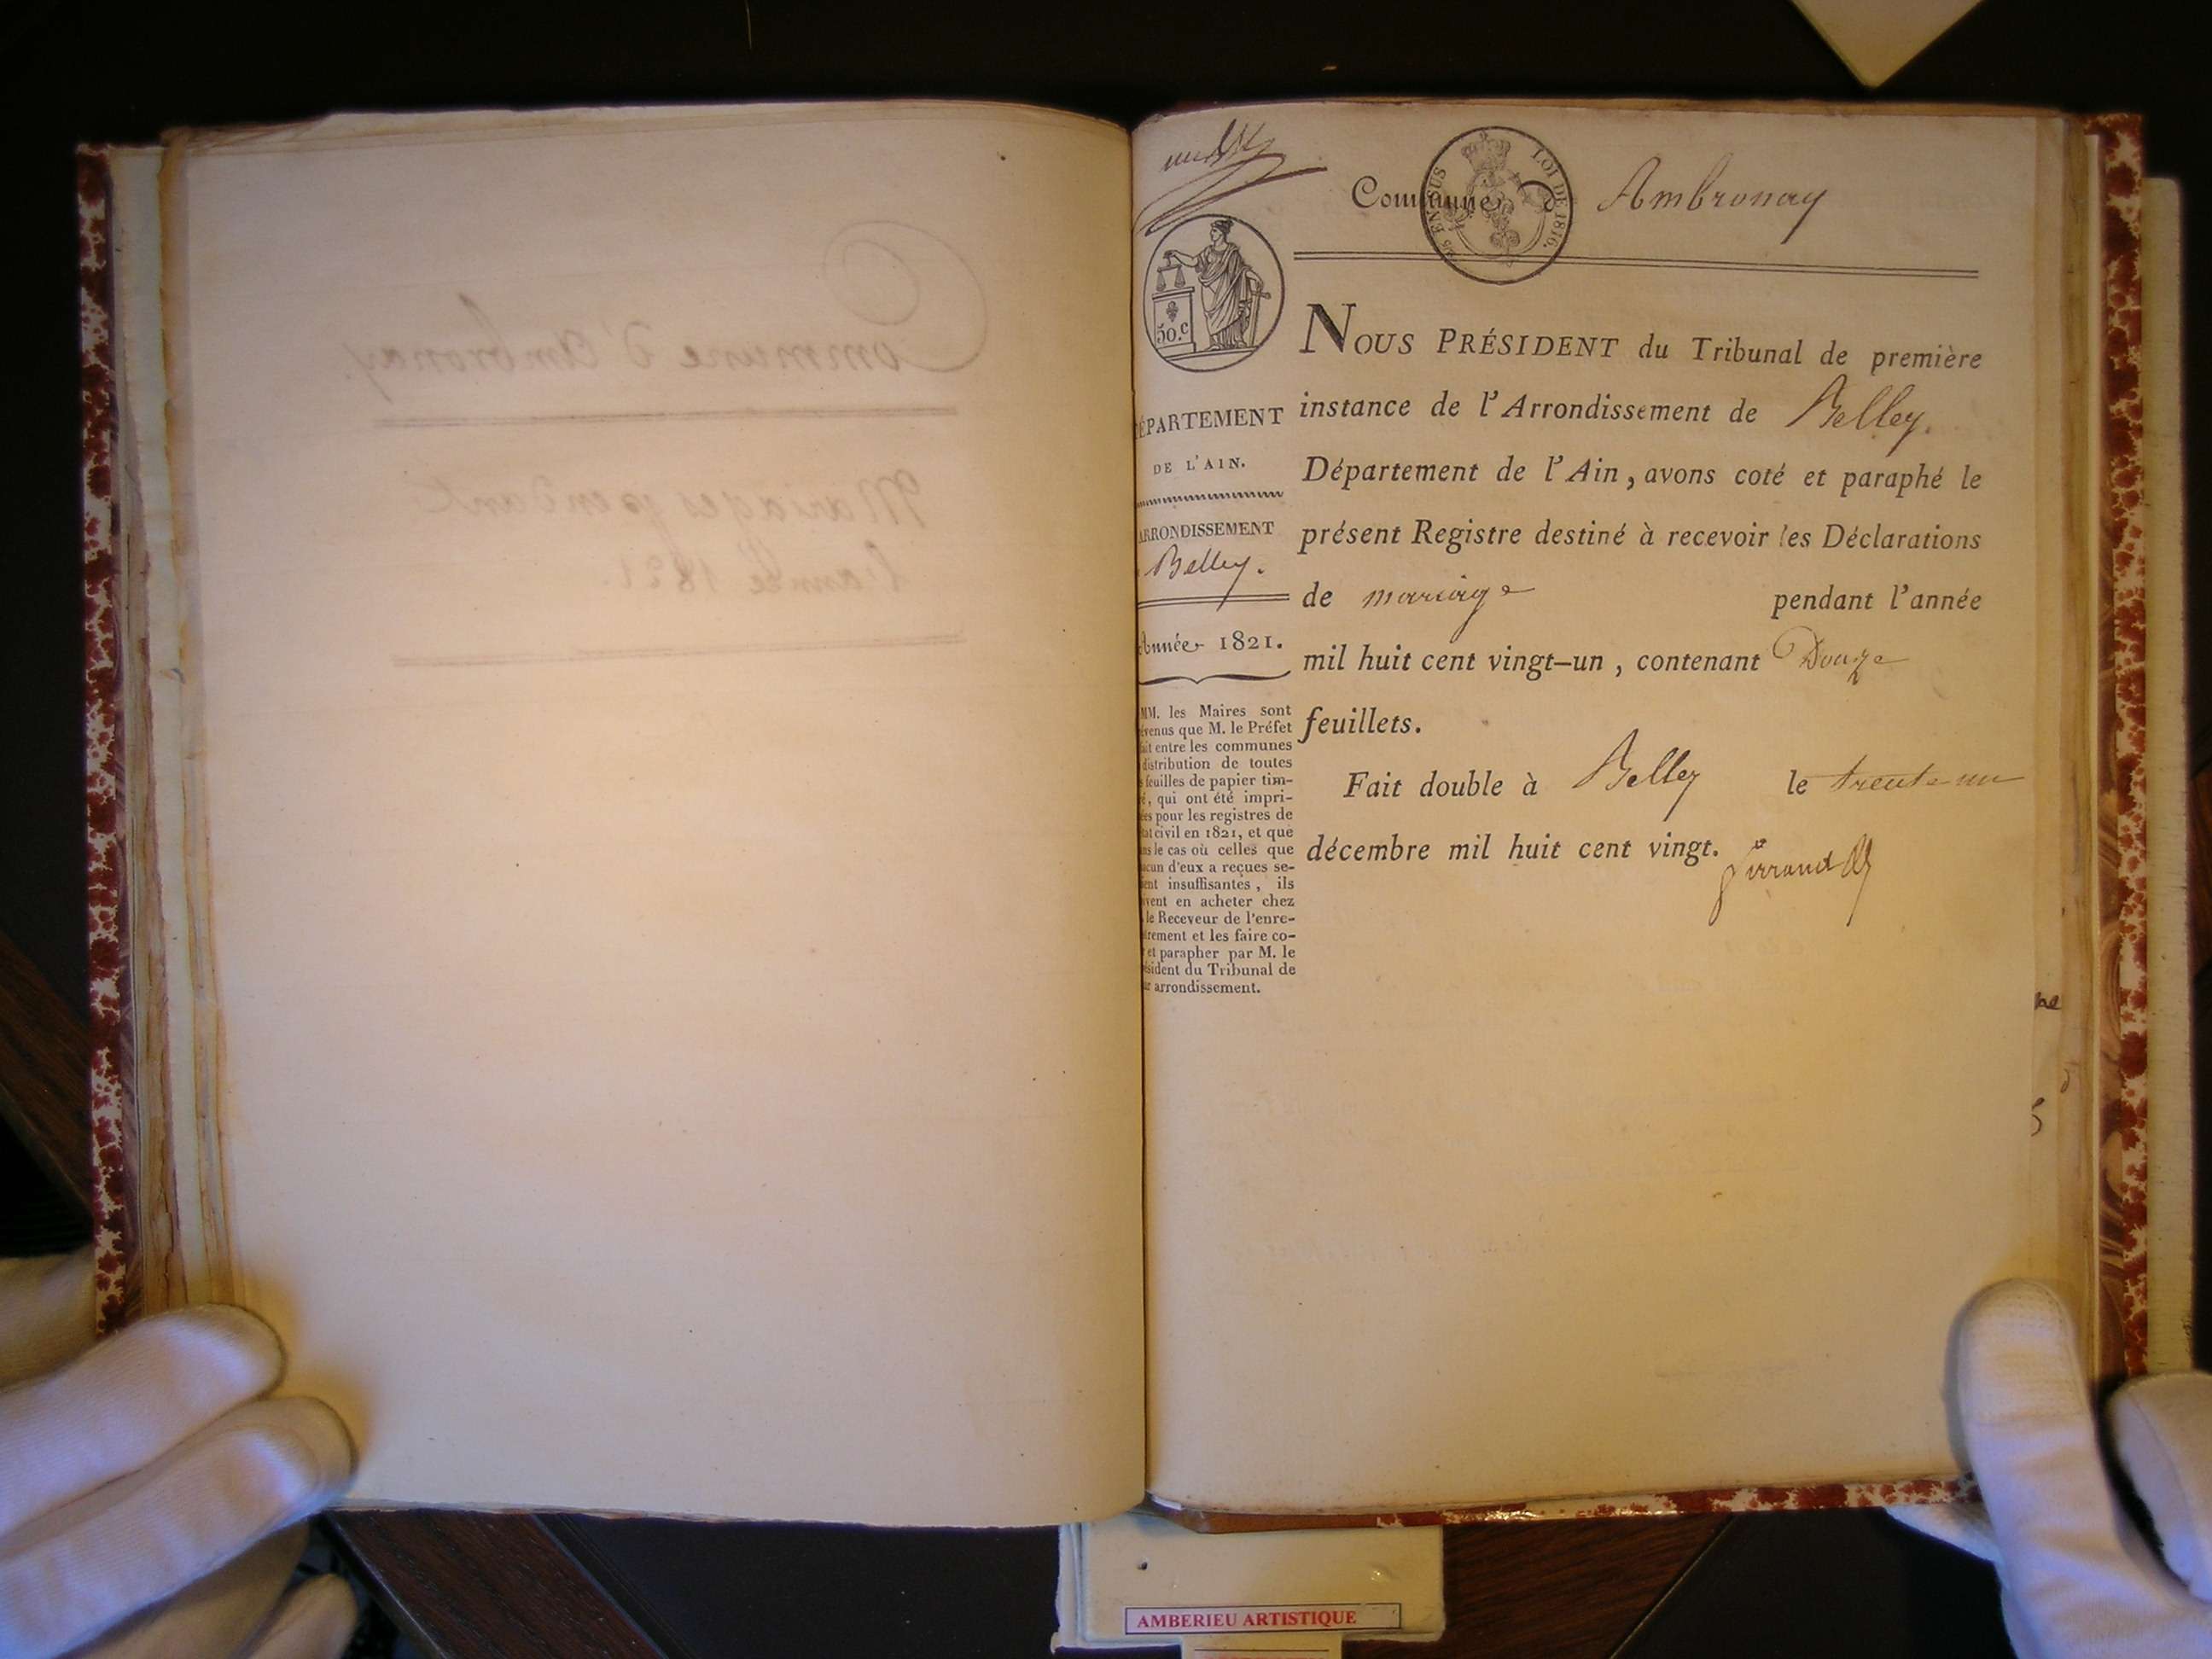 Commune d'Ambronay.
Mariages pendant
l'année 1821.
Commune d Ambronay
25 EN SUS
LOI DE 1816.
50.c
ÉPARTEMENT
DE L'AIN.
ARRONDISSEMENT
Belley.
Année 1821.
MM. les Maires sont
évenus que M. le Préfet
ait entre les communes
distribution de toutes
s feuilles de papier tim-
é, qui ont été impri-
ées pour les registres de
tat civil en 1821, et que
ns le cas où celles que
acun d'eux a reçues se-
ient insuffisantes, ils
ivent en acheter chez
le Receveur de l'enre-
trement et les faire co-
r et parapher par M. le
ésident du Tribunal de
ur arrondissement.
NOUS PRÉSIDENT du Tribunal de première
instance de l'Arrondissement de Belley.
Département de l'Ain, avons coté et paraphé le
présent Registre destiné à recevoir les Déclarations
de mariage pendant l'année
mil huit cent vingt-un, contenant Douze
feuillets.
Fait double à Belley le trente un
décembre mil huit cent vingt.
AMBERIEU ARTISTIQUE